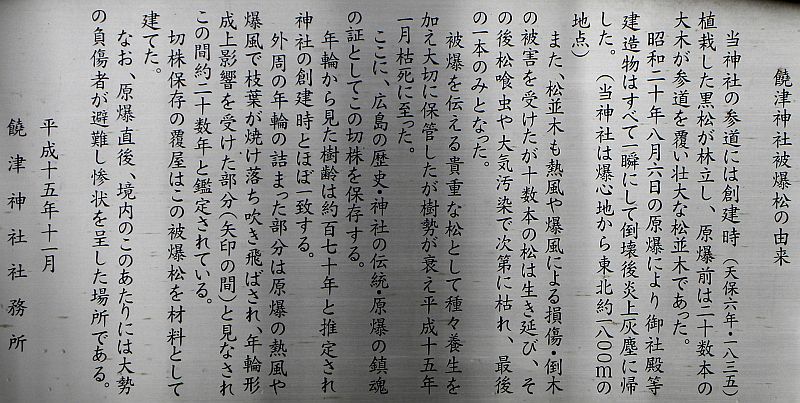 饒津神社被爆松の由来
当神社の参道には創建時（天保六年・一八三五）
植栽した黒松が林立し、原爆前は二十数本の
大木が参道を覆い壮大な松並木であった。
昭和二十年八月六日の原爆により御社殿等
建造物はすべて一瞬にして倒壊後炎上灰塵に帰
した。（当神社は爆心地から東北約一八〇〇ｍの
地点）
また、松並木も熱風や爆風による損傷・倒木
の被害を受けたが十数本の松は生き延び、そ
の後松喰虫や大気汚染で次第に枯れ、最後
の一本のみとなった。
被爆を伝える貴重な松として種々養生を
加え大切に保管したが樹勢が衰え平成十五年
一月枯死に至った。
ここに、広島の歴史・神社の伝統・原爆の鎮魂
の証としてこの切株を保存する。
年輪から見た樹齢は約百七十年と推定され
神社の創建時とほぼ一致する。
外周の年輪の詰まった部分は原爆の熱風や
爆風で枝葉が焼け落ち吹き飛ばされ、年輪形
成上影響を受けた部分（矢印の間）と見なされ
この間約二十数年と鑑定されている。
切株保存の覆屋はこの被爆松を材料として
建てた。
なお、原爆直後、境内のこのあたりには大勢
の負傷者が避難し惨状を呈した場所である。
平成十五年十一月
饒津神社社務所